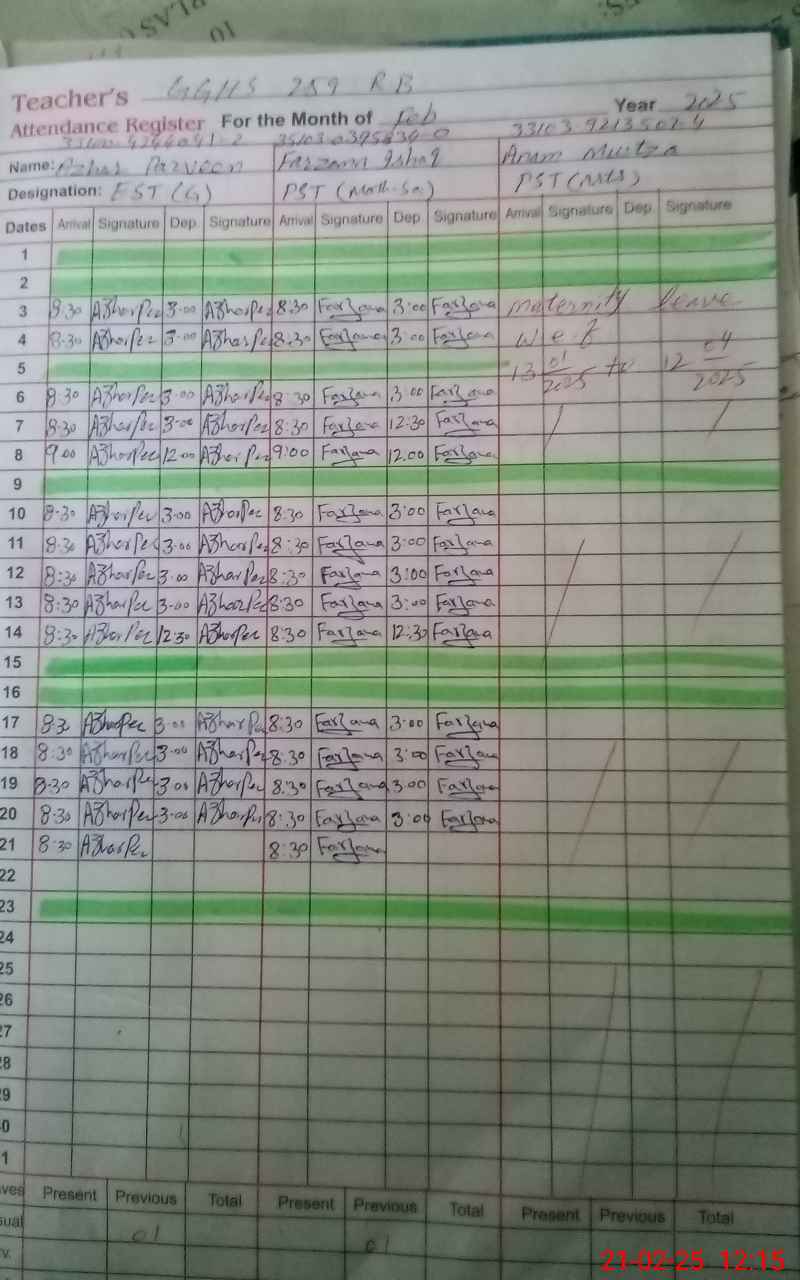 Teacher's GGHS 259 RB
Attendance Register For the Month of Feb Year 2025
Name: Azhar Parveen Farzana Ishaq Anam Murtza
Designation: EST (G) PST (Math-Sci) PST (Arts)
Dates Arrival Signature Dep. Signature Arrival Signature Dep Signature Arrival Signature Dep. Signature
1
2
3 8:30 AzharPer 3-00 AzharPer 8:30 Farzana 3:00 Farzana maternity leave
4 8:30 AzharPer 3-00 AzharPer 8:30 Farzana 3:00 Farzana w.e.f
5 13 01/2025 to 12 04/2025
6 8:30 AzharPer 3-00 AzharPer 8:30 Farzana 3:00 Farzana
7 8:30 AzharPer 3-00 AzharPer 8:30 Farzana 12:30 Farzana
8 9:00 AzharPer 12:00 AzharPer 9:00 Farzana 12:00 Farzana
9
10 8:30 AzharPer 3-00 AzharPer 8:30 Farzana 3:00 Farzana
11 8:30 AzharPer 3-00 AzharPer 8:30 Farzana 3:00 Farzana
12 8:30 AzharPer 3-00 AzharPer 8:30 Farzana 3:00 Farzana
13 8:30 AzharPer 3-00 AzharPer 8:30 Farzana 3:00 Farzana
14 8:30 AzharPer 12:30 AzharPer 8:30 Farzana 12:30 Farzana
15
16
17 8:30 AzharPer 3-00 AzharPer 8:30 Farzana 3:00 Farzana
18 8:30 AzharPer 3-00 AzharPer 8:30 Farzana 3:00 Farzana
19 8:30 AzharPer 3-00 AzharPer 8:30 Farzana 3:00 Farzana
20 8:30 AzharPer 3-00 AzharPer 8:30 Farzana 3:00 Farzana
21 8:30 AzharPer 8:30 Farzana
22
23
24
25
26
27
8
9
0
1
ves Present Previous Total Present Previous Total Present Previous Total
sual 01 01
v.
21-02-25 12:15